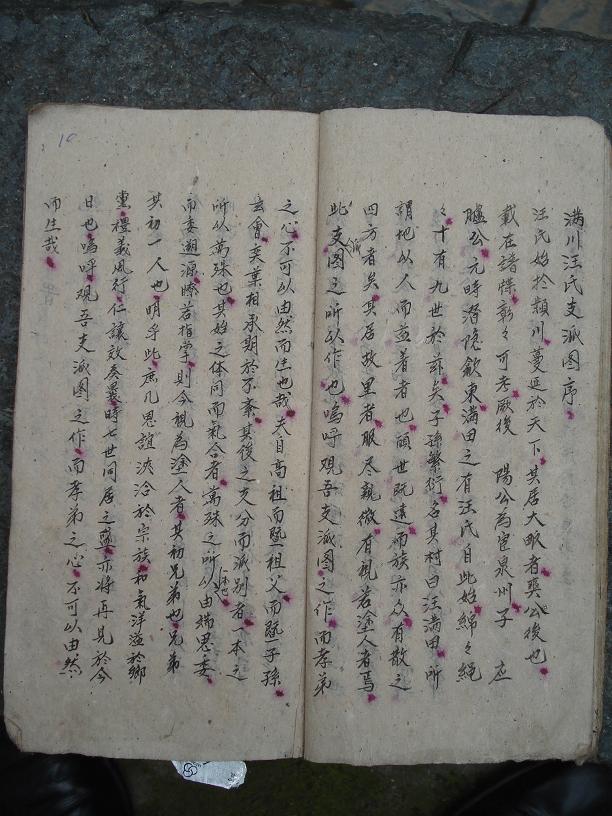 满川汪氏支派图序
汪氏始於颖川蔓延於天下其居大畈者奭公後也
载在譜牒彰々可考厥後 陽公為宦泉州子 应
臚公元時潜隐歙東满田之有汪氏自此始綿々繩
々十有九世於兹矣子孫繁衍名其村曰汪满田所
謂地以人而益著者也顧世既遠而族亦众有散之
四方者矣其居故里者服尽親微有視若塗人者焉
此支派图之所以作也嗚呼观吾支派图之作而孝弟
之心不可以由然而生也哉夫自高祖而暨祖父而暨子孫
会芙葉相承期於不紊其後之支分而派别者一本之
所以萬殊也其始之体同而氣合者萬殊之所以由
而委遡源瞭若指掌则今視為塗人者其初兄弟也兄弟
其初一人也明乎此庶几恩誼浹洽於宗族和氣洋溢於鄉
黨禮義風行仁讓效奏曩時七世同居之盛亦将再見於今
日也嗚呼观吾支派图之作而孝弟之心不可以由然
而生哉
10